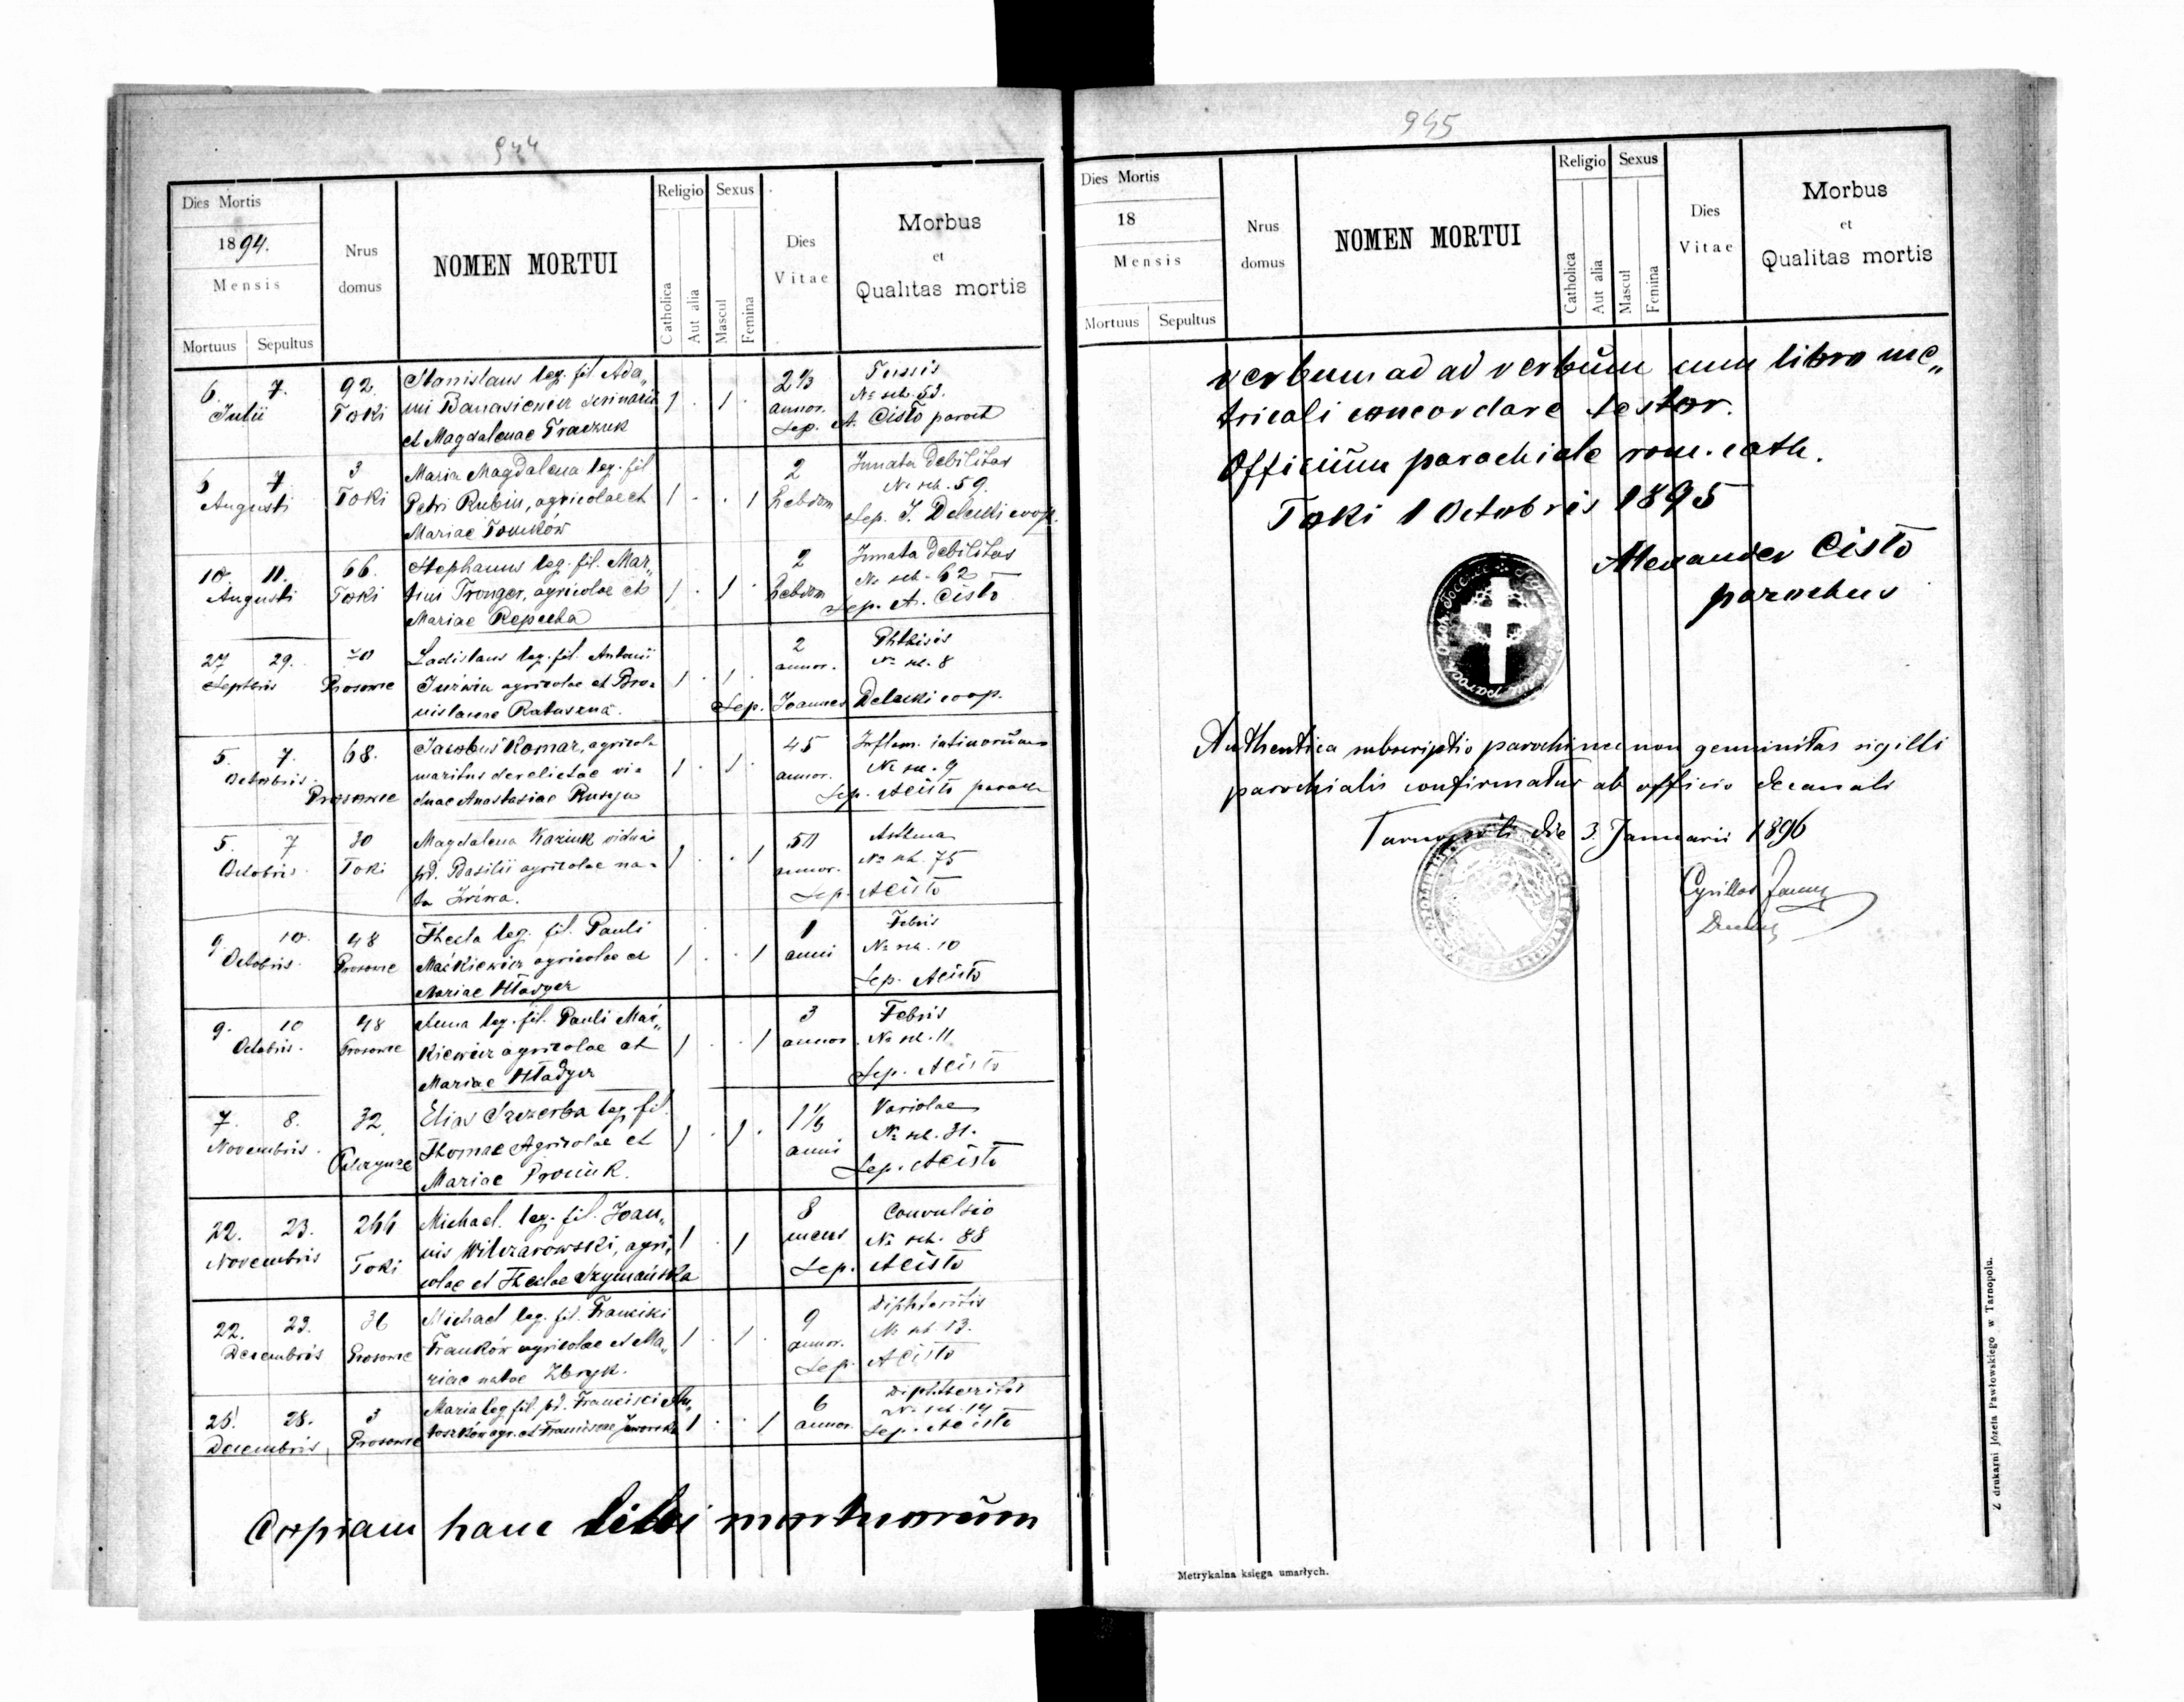 944
Dies Mortis
1894.
Mensis
Mortuus Sepultus
Nrus domus
NOMEN MORTUI
Religio
Catholica
Aut alia
Sexus
Mascul
Femina
Dies Vitae
Morbus
et
Qualitas mortis
6. 7. 92 Stanislaus leg. fil Ada„ 1 . 1 . 2⅓ Tussis
Julii Toki mi Banasiewicz annor. No sch. 53.
et Magdalenae Sep. A. Cisło paroch
6 7. 3 Maria Magdalena leg. fil 1 . . 1 2 Innata debilitas
Augusti Toki Petri Rubin, agricolae et hebdom No sch. 59.
Mariae Tomków Sep. J. Delecki coop.
10. 11. 66. Stephanus leg. fil. Mar„ 1 . 1 . 2 Innata debilitas
Augusti Toki tini agricolae et hebdom No sch. 62
Mariae Repecka Sep. A. Cisło
27 29. Ladislaus leg. fil. Antonii 1 . 1 . 2 Phthisis
Septbris Prosowce agricolae et Bro- annor. No sch. 8
nislavae Ratuszna. Sep. Joannes Delecki coop.
5. 7. 68. Jacobus Komar, agricola 1 . 1 . 45 Inflam. intinorum
Octobris. Prosowce maritus derelictae vi- annor. No sch. 9
duae Anastasiae Sep. ACisło paroch
5. 7 30 Magdalena Kaziuk vidua 1 . . 1 50 Asthma
Octobris Toki pd. Basilii agricolae na- annor. No sch. 75
ta Sep. ACisło
9. 10. 48 Thecla leg. fil. Pauli 1 . . 1 1 Febris
Octobris. Prosowce Maćkiewicz agricolae et anni No sch. 10
Mariae Hładyer Sep. ACisło
9. 10 48 Anna leg. fil. Pauli Mać„ 1 . . 1 3 Febris
Octobris. Prosowce kiewicz agricolae et annor. No sch. 11
Mariae Hładyer Sep. ACisło
7. 8. 32. Elias Szczerba leg. fil. 1 . 1 . Variolae
Novembris. Thomae Agricolae et anni No sch. 31.
Mariae Proniuk. Sep. ACisło
22. 23. 266 Michael. leg. fil. Joan„ 1 . 1 8 Convulsio
Novembris Toki nis Wilczarowski, agri„ mens No sch. 88
colae et Theclae Szymańska Sep. ACisło
22. 23. 36 Michael leg. fil. Franciski 1 . 1 . 9 Diphteritis
Decembris Prosowce Franków agricolae et Ma„ annor. No sch 13.
riae natae Zbryk. Sep. ACisło
28. 3 Maria leg. fil. pd. Francisci 1 . . 1 6 Diphtheritis
Decembris, Prosowce agr. et Franciscae Jaworska annor. No sch. 14
Sep. ACisło
Copiam hanc libri mortuorum
945
Dies Mortis
18
Mensis
Mortuus Sepultus
Nrus domus
NOMEN MORTUI
Religio
Catholica
Aut alia
Sexus
Mascul
Femina
Dies Vitae
Morbus
et
Qualitas mortis
verbum ad ad verbum cum libro me„
tricali concordare testor.
Officium parochiale rom. cath.
Toki 1 Octobris 1895
Alexander Cisło
parochus
Authentica subscriptio parochi necnon genuinitas sigilli
parochialis confirmatur ab officio decanali
Tarnopoli die 3. Januarii 1896
Cyrillus
Metrykalna księga umarłych.
Z drukarni Józefa Pawłowskiego w Tarnopolu.